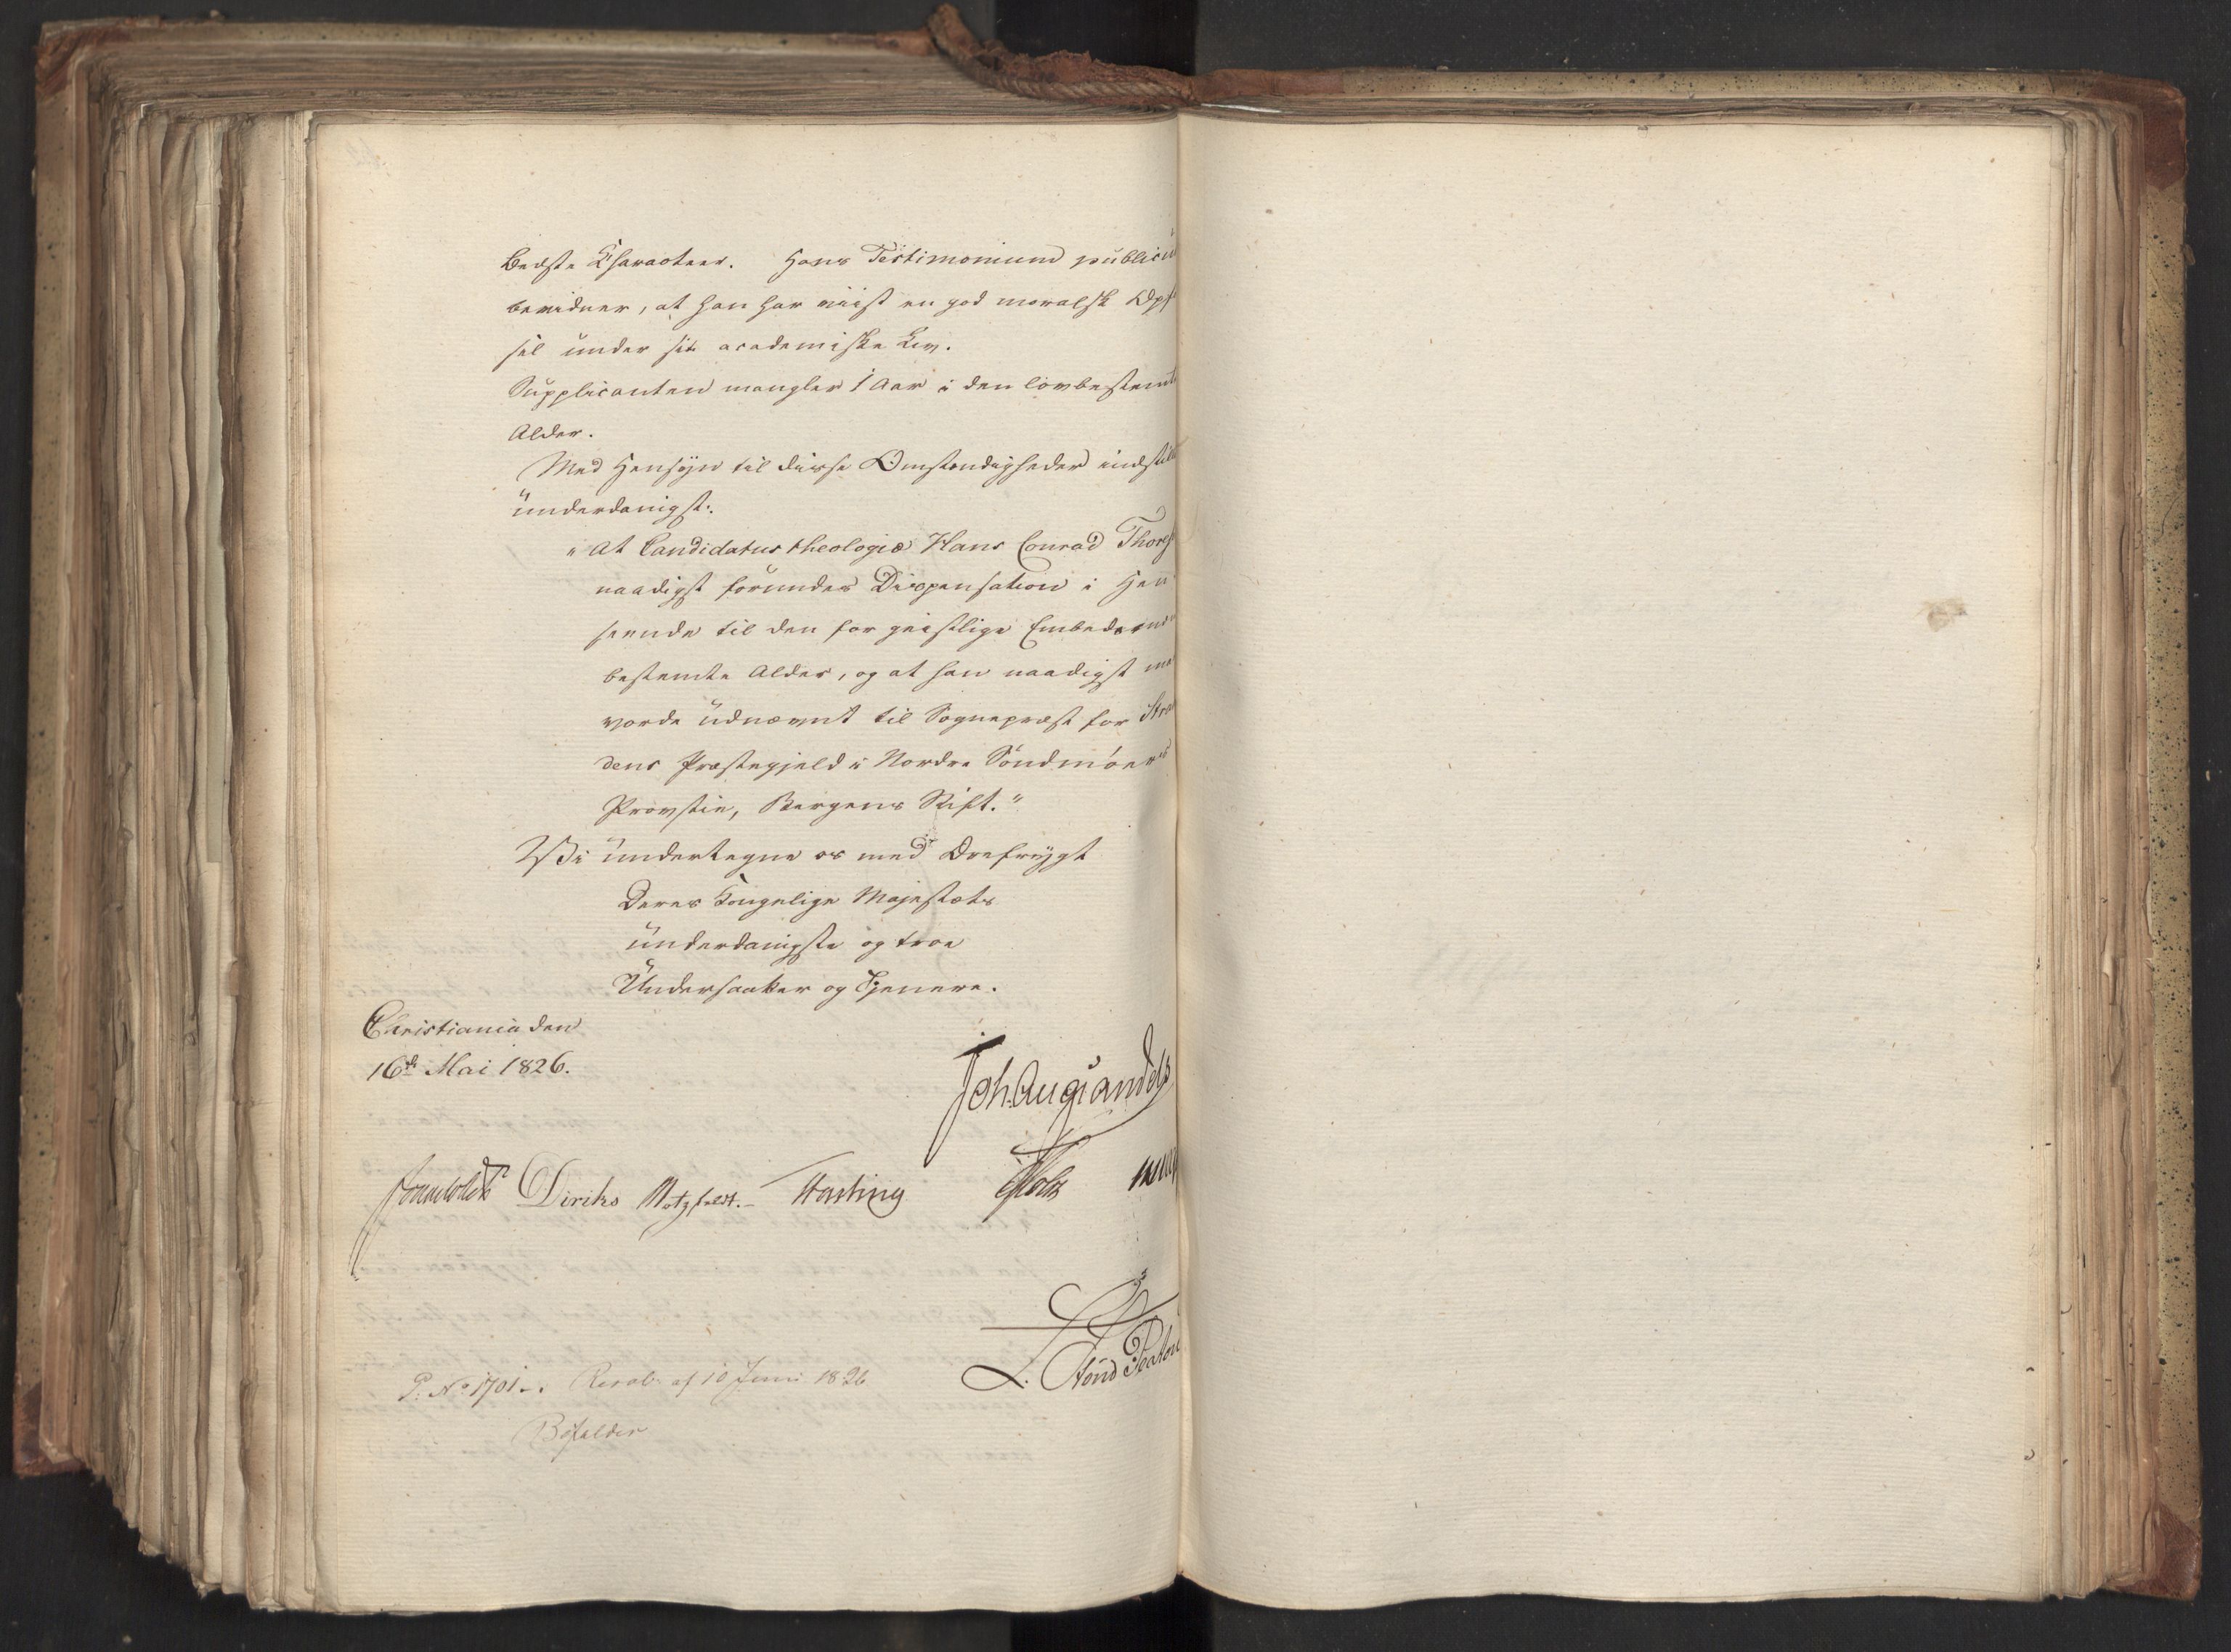 bedste Character. Hans Testimonium publicu
bevidner, at han har viist en god moralsk Opf
sel under sit academiske Liv.
Supplicanten mangler 1 Aar i den lovbestemte
Alder.
Med Hensyn til disse Omstendigheder indstill
underdanigst:
"At Candidatus theologiæ Hans Conrad Thores
naadigst forundes Dispensation i Hen
seende til den for geistlige Embedsmænd
bestemte Alder, og at han naadigst maa
vorde udnævnt til Sognepræst for Stran
dens Præstegjeld i Nordre Söndmöers
Provstie, Bergens Stift."
Vi undertegne os med Ærefrygt
Deres Kongelige Majestæts
underdanigste og troe
Undersaatter og Tjenere.
Christiania den
16de Mai 1826.
Joh. Aug. Sandels
Diriks Motzfeldt. Fasting Holst
P. No 1701. Resol: af 10 Juni 1826
Bifaldes